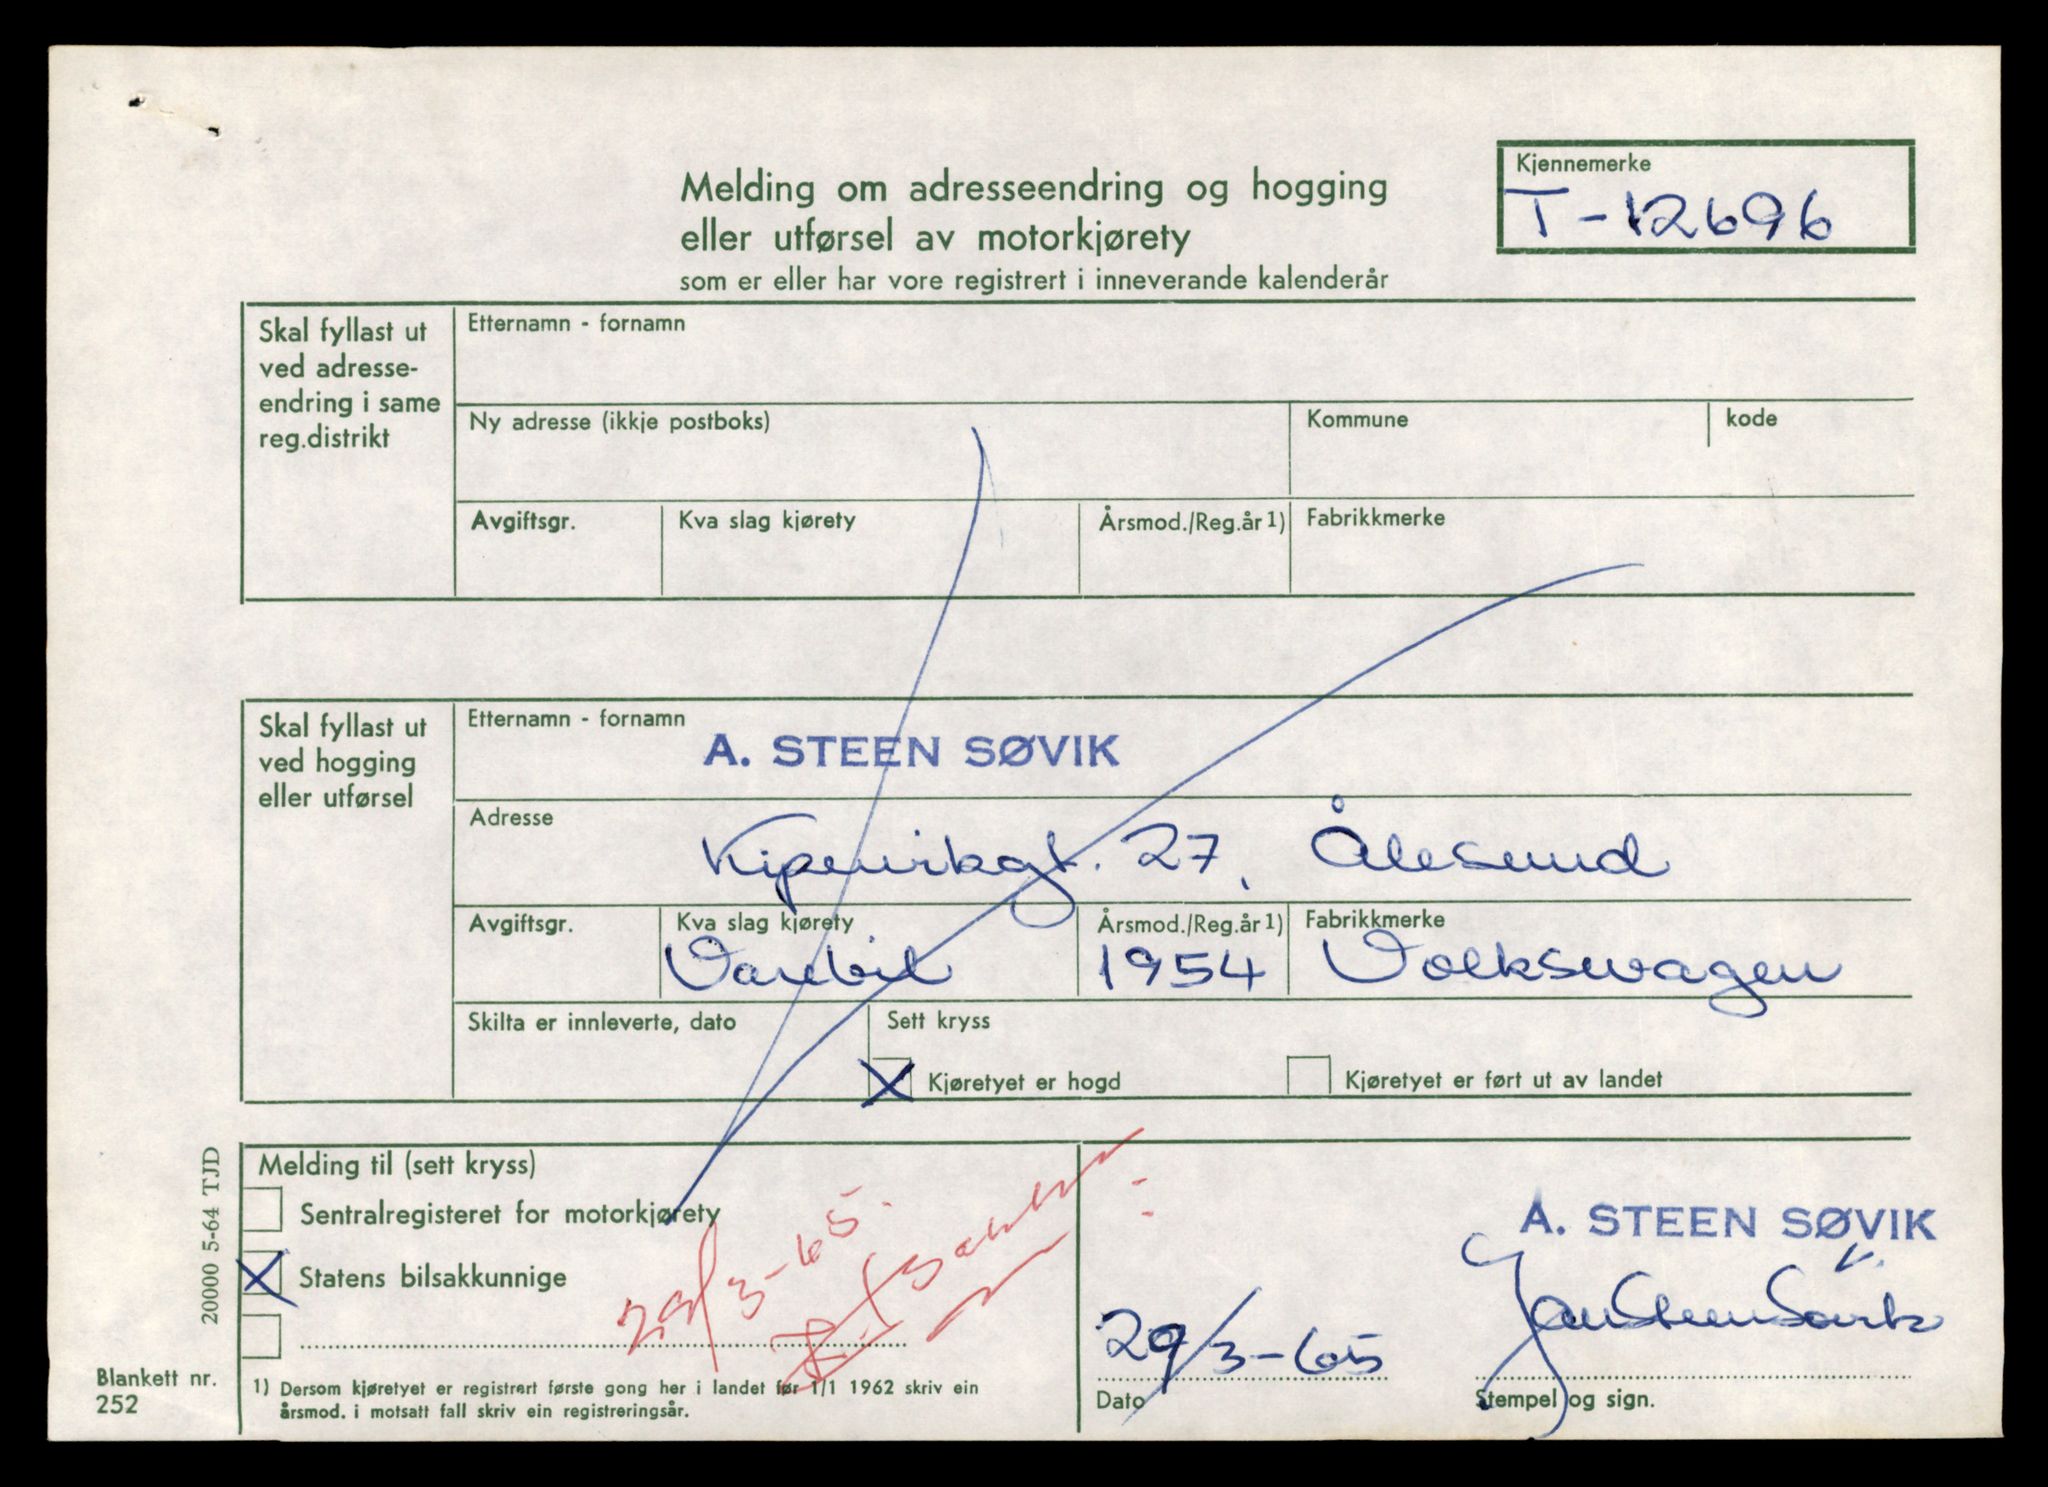 Kjennemerke
T-12696
Melding om adresseendring og hogging
eller utførsel av motorkjørety
som er eller har vore registrert i inneverande kalenderår
Skal fyllast ut
ved adresse-
endring i same
reg.distrikt
Etternamn - fornamn
Ny adresse (ikkje postboks)
Kommune
kode
Avgiftsgr.
Kva slag kjørety
Årsmod./Reg.år 1)
Fabrikkmerke
Skal fyllast ut
ved hogging
eller utførsel
Etternamn - fornamn
A. STEEN SØVIK
Adresse
Kipervikgt. 27, Ålesund
Avgiftsgr.
Kva slag kjørety
Varebil
Årsmod./Reg.år 1)
1954
Fabrikkmerke
Volkswagen
Skilta er innleverte, dato
Sett kryss
X Kjøretyet er hogd
Kjøretyet er ført ut av landet
Melding til (sett kryss)
Sentralregisteret for motorkjørety
X Statens bilsakkunnige
29/3-65.
A. STEEN SØVIK
Jan Steen Søvik
29/3-65
Dato
Stempel og sign.
1) Dersom kjøretyet er registrert første gong her i landet før 1/1 1962 skriv ein
årsmod. i motsatt fall skriv ein registreringsår.
20000 5-64 TJD
Blankett nr.
252